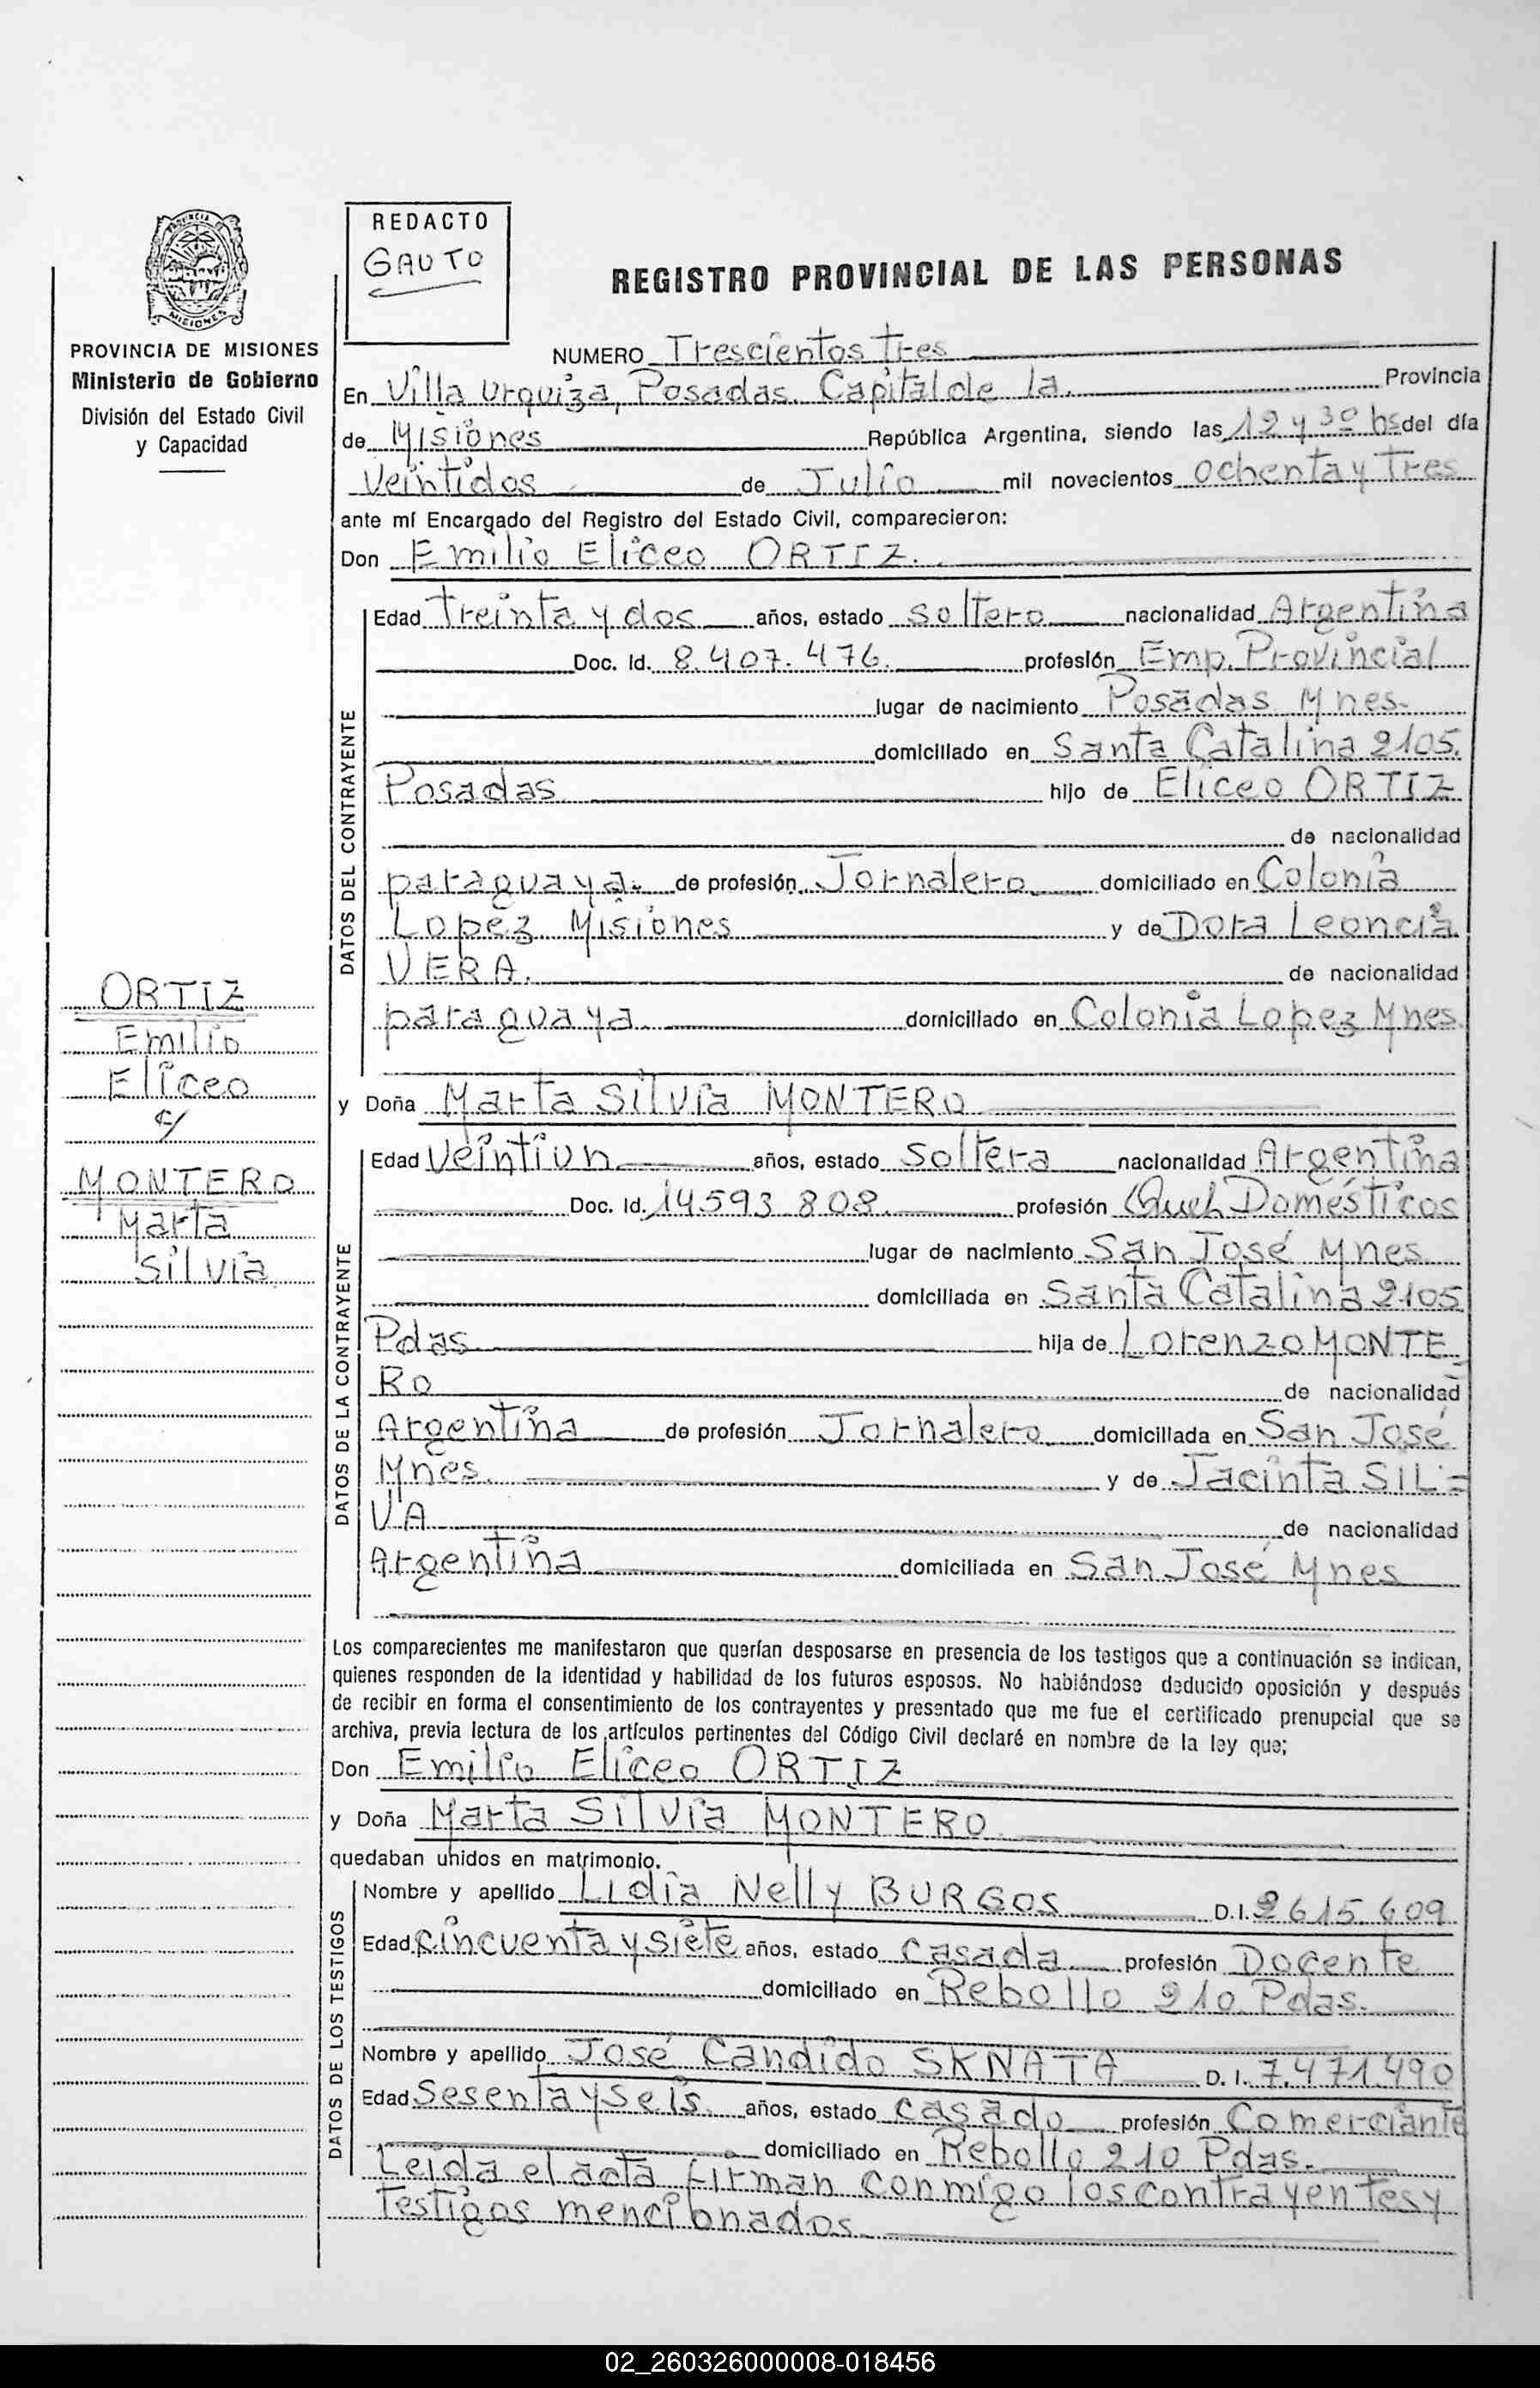 PROVINCIA
MISIONES
PROVINCIA DE MISIONES
Ministerio de Gobierno
División del Estado Civil
y Capacidad
REDACTO
GAUTO
REGISTRO PROVINCIAL DE LAS PERSONAS
NUMERO Trescientos tres
En Villa Urquiza, Posadas. Capital de la. Provincia
de Misiones República Argentina, siendo las 12 y 30 hs del día
Veintidos de Julio mil novecientos ochenta y tres
ante mí Encargado del Registro del Estado Civil, comparecieron:
Don Emilio Eliceo ORTIZ.
DATOS DEL CONTRAYENTE
Edad treinta y dos años, estado soltero nacionalidad Argentina
Doc. Id. 8.407.476. profesión Emp. Provincial
lugar de nacimiento Posadas Mnes.
domiciliado en Santa Catalina 2105.
Posadas hijo de Eliceo ORTIZ
de nacionalidad
paraguaya. de profesión Jornalero domiciliado en Colonia
Lopez Misiones y de Dora Leoncia
VERA. de nacionalidad
paraguaya domiciliado en Colonia Lopez Mnes.
y Doña Marta Silvia MONTERO
DATOS DE LA CONTRAYENTE
Edad Veintiun años, estado Soltera nacionalidad Argentina
Doc. Id. 14593.808. profesión Queh Domésticos
lugar de nacimiento San José Mnes.
domiciliada en Santa Catalina 2105
Pdas hija de Lorenzo MONTE
RO de nacionalidad
Argentina de profesión Jornalero domiciliada en San José
Mnes. y de Jacinta SIL=
VA de nacionalidad
Argentina domiciliada en San José Mnes
ORTIZ
Emilio
Eliceo
c/
MONTERO
Marta
Silvia
Los comparecientes me manifestaron que querían desposarse en presencia de los testigos que a continuación se indican,
quienes responden de la identidad y habilidad de los futuros esposos. No habiéndose deducido oposición y después
de recibir en forma el consentimiento de los contrayentes y presentado que me fue el certificado prenupcial que se
archiva, previa lectura de los artículos pertinentes del Código Civil declaré en nombre de la ley que;
Don Emilio Eliceo ORTIZ
y Doña Marta Silvia MONTERO
quedaban unidos en matrimonio.
DATOS DE LOS TESTIGOS
Nombre y apellido Lidia Nelly BURGOS D.I. 2615.609
Edad cincuenta y siete años, estado casada profesión Docente
domiciliado en Rebollo 210 Pdas.
Nombre y apellido José Candido SKNATA D.I. 7.471.490
Edad Sesenta y seis años, estado casado profesión Comerciante
domiciliado en Rebollo 210 Pdas.
Leida el acta firman conmigo los contrayentes y
testigos mencionados
02_260326000008-018456